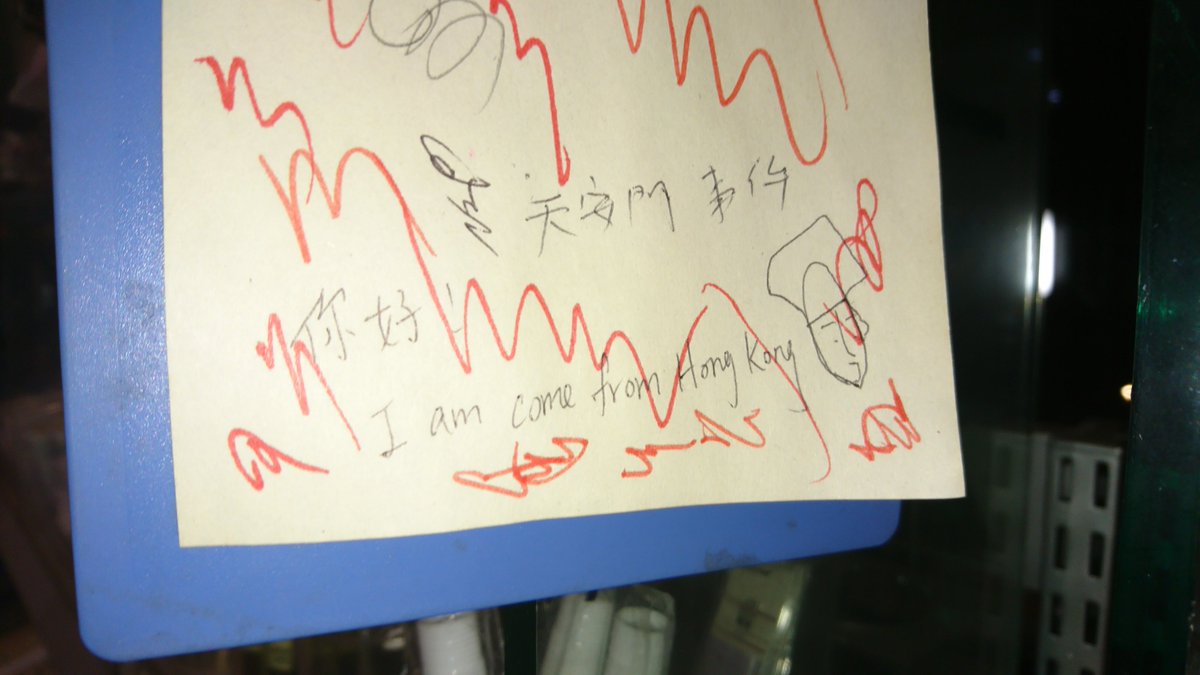 天安門 事件
你好!
I am come from Hong Kong